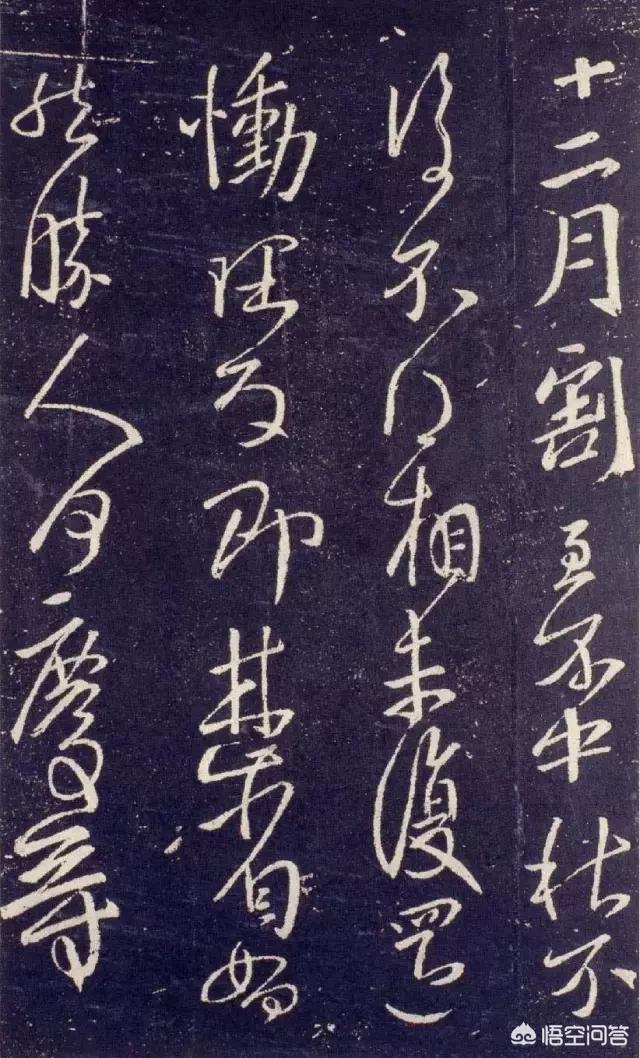 十二月割至不中秋不
復不得相未復還
慟理為即甚省如
然勝人何慶等
悟空问答